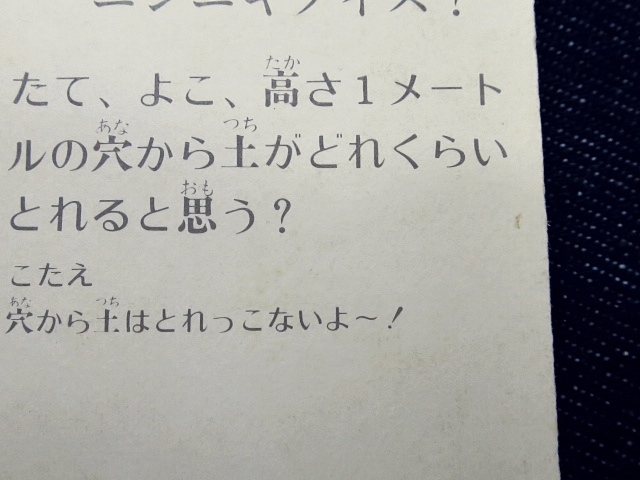 たて、よこ、高さ1メート
ルの穴から土がどれくらい
とれると思う?
こたえ
穴から土はとれっこないよ〜!